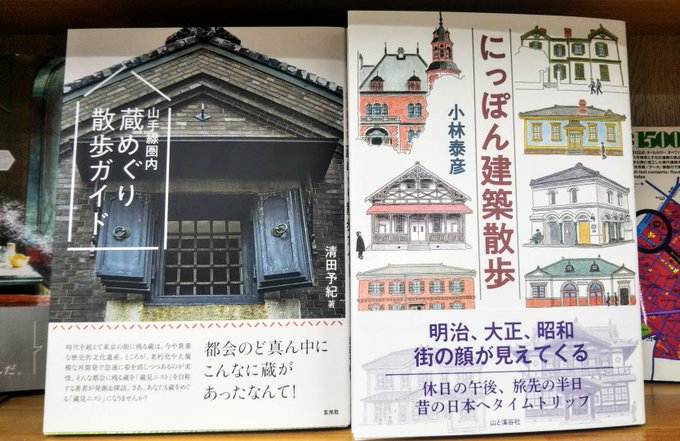 山手線圏内
蔵めぐり
散歩ガイド
清田予紀 著
時代を超えて東京の街に残る蔵は、今や貴重
な歴史的文化遺産。ところが、老朽化や大規
模な再開発で急速に姿を消しつつあるのが実
情。そんな都会に残る蔵を「蔵見ニスト」を自称
する著者が発掘&探訪。さあ、あなたも蔵をめぐ
る「蔵見ニスト」になりませんか?
都会のど真ん中に
こんなに蔵が
あったなんて!
玄光社
にっぽん建築散歩
小林泰彦
明治、大正、昭和
街の顔が見えてくる
休日の午後、旅先の半日
昔の日本へタイムトリップ
山と溪谷社
1500